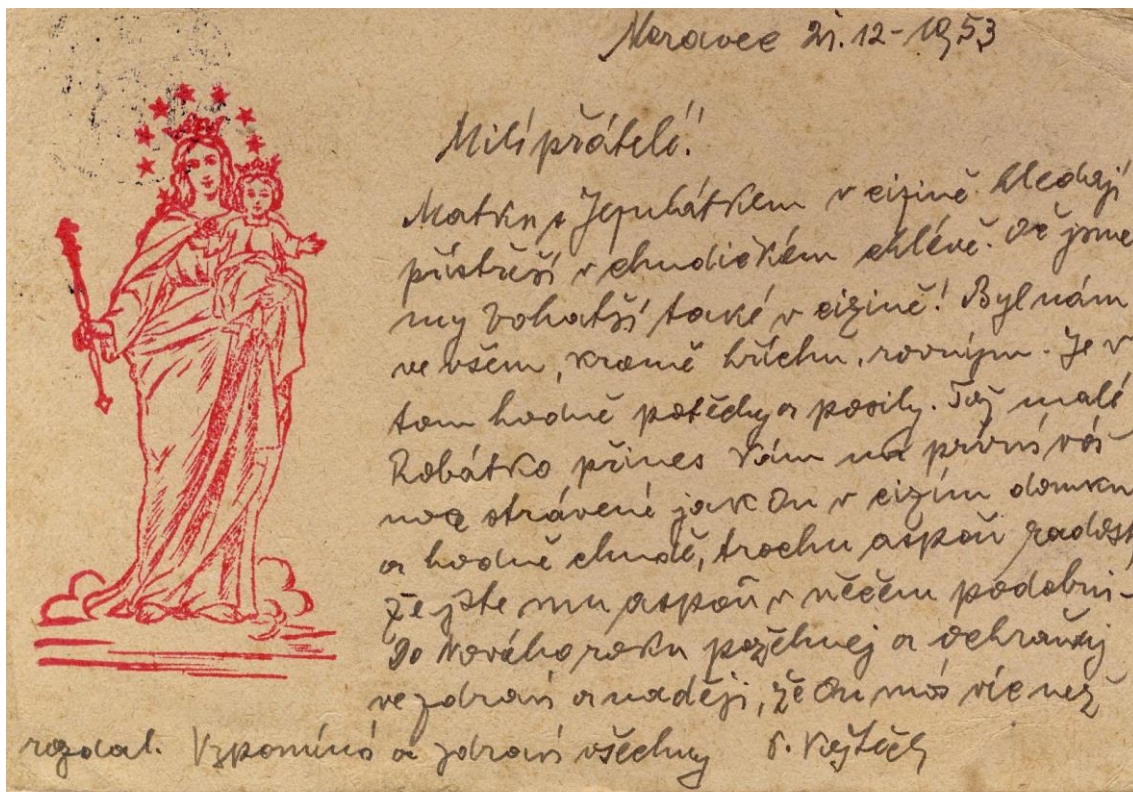 Moravec 21.12-1953
Milí přátelé!
Matka s Jezulátkem v cizině hledají
přístřeší v chudičkém chlévě. Oč jsme
my bohatší také v cizině! Byl nám
ve všem, kromě hříchu, rovným. Je v
tom hodně potěchy a posily. Též malé
Robátko přines Vám na první váš
noc strávené jak On v cizím domku
a hodně chudě, trochu aspoň radosti
že jste mu aspoň v něčem podobni-
Do Nového roku požehnej a ochraňuj
ve zdraví a naději, že On má víc než
rozdal. Vzpomíná a zdraví všechny P. Vojtěch